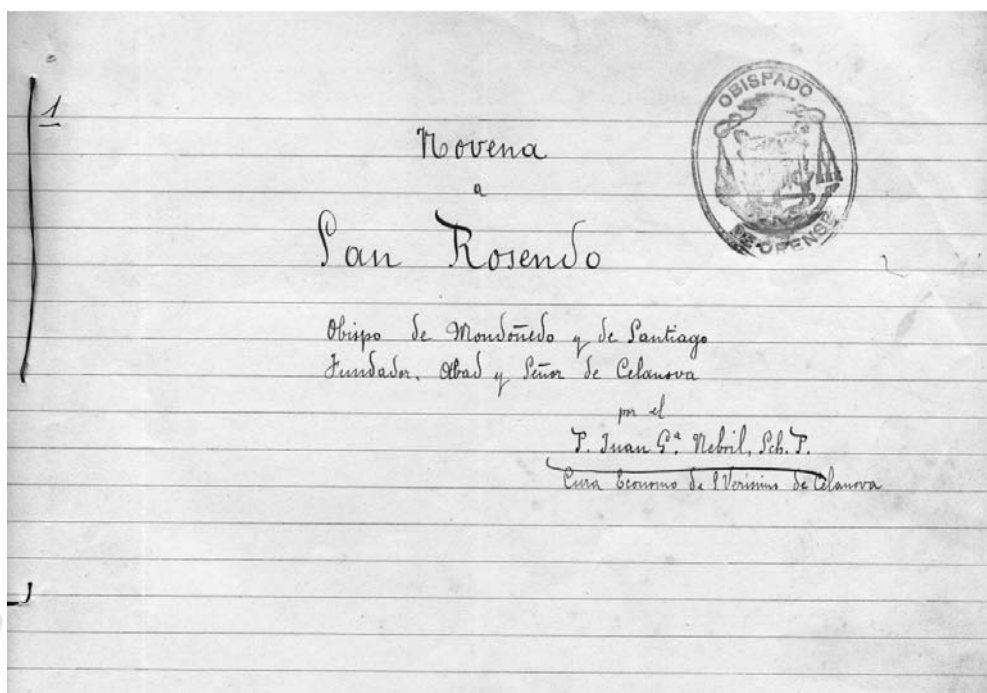 1
OBISPADO
DE ORENSE
Novena
a
San Rosendo
Obispo de Mondoñedo y de Santiago
Fundador, Abad y Señor de Celanova
por el
P. Juan Gª Nebril, Sch. P.
Cura Economo de S Verisimo de Celanova